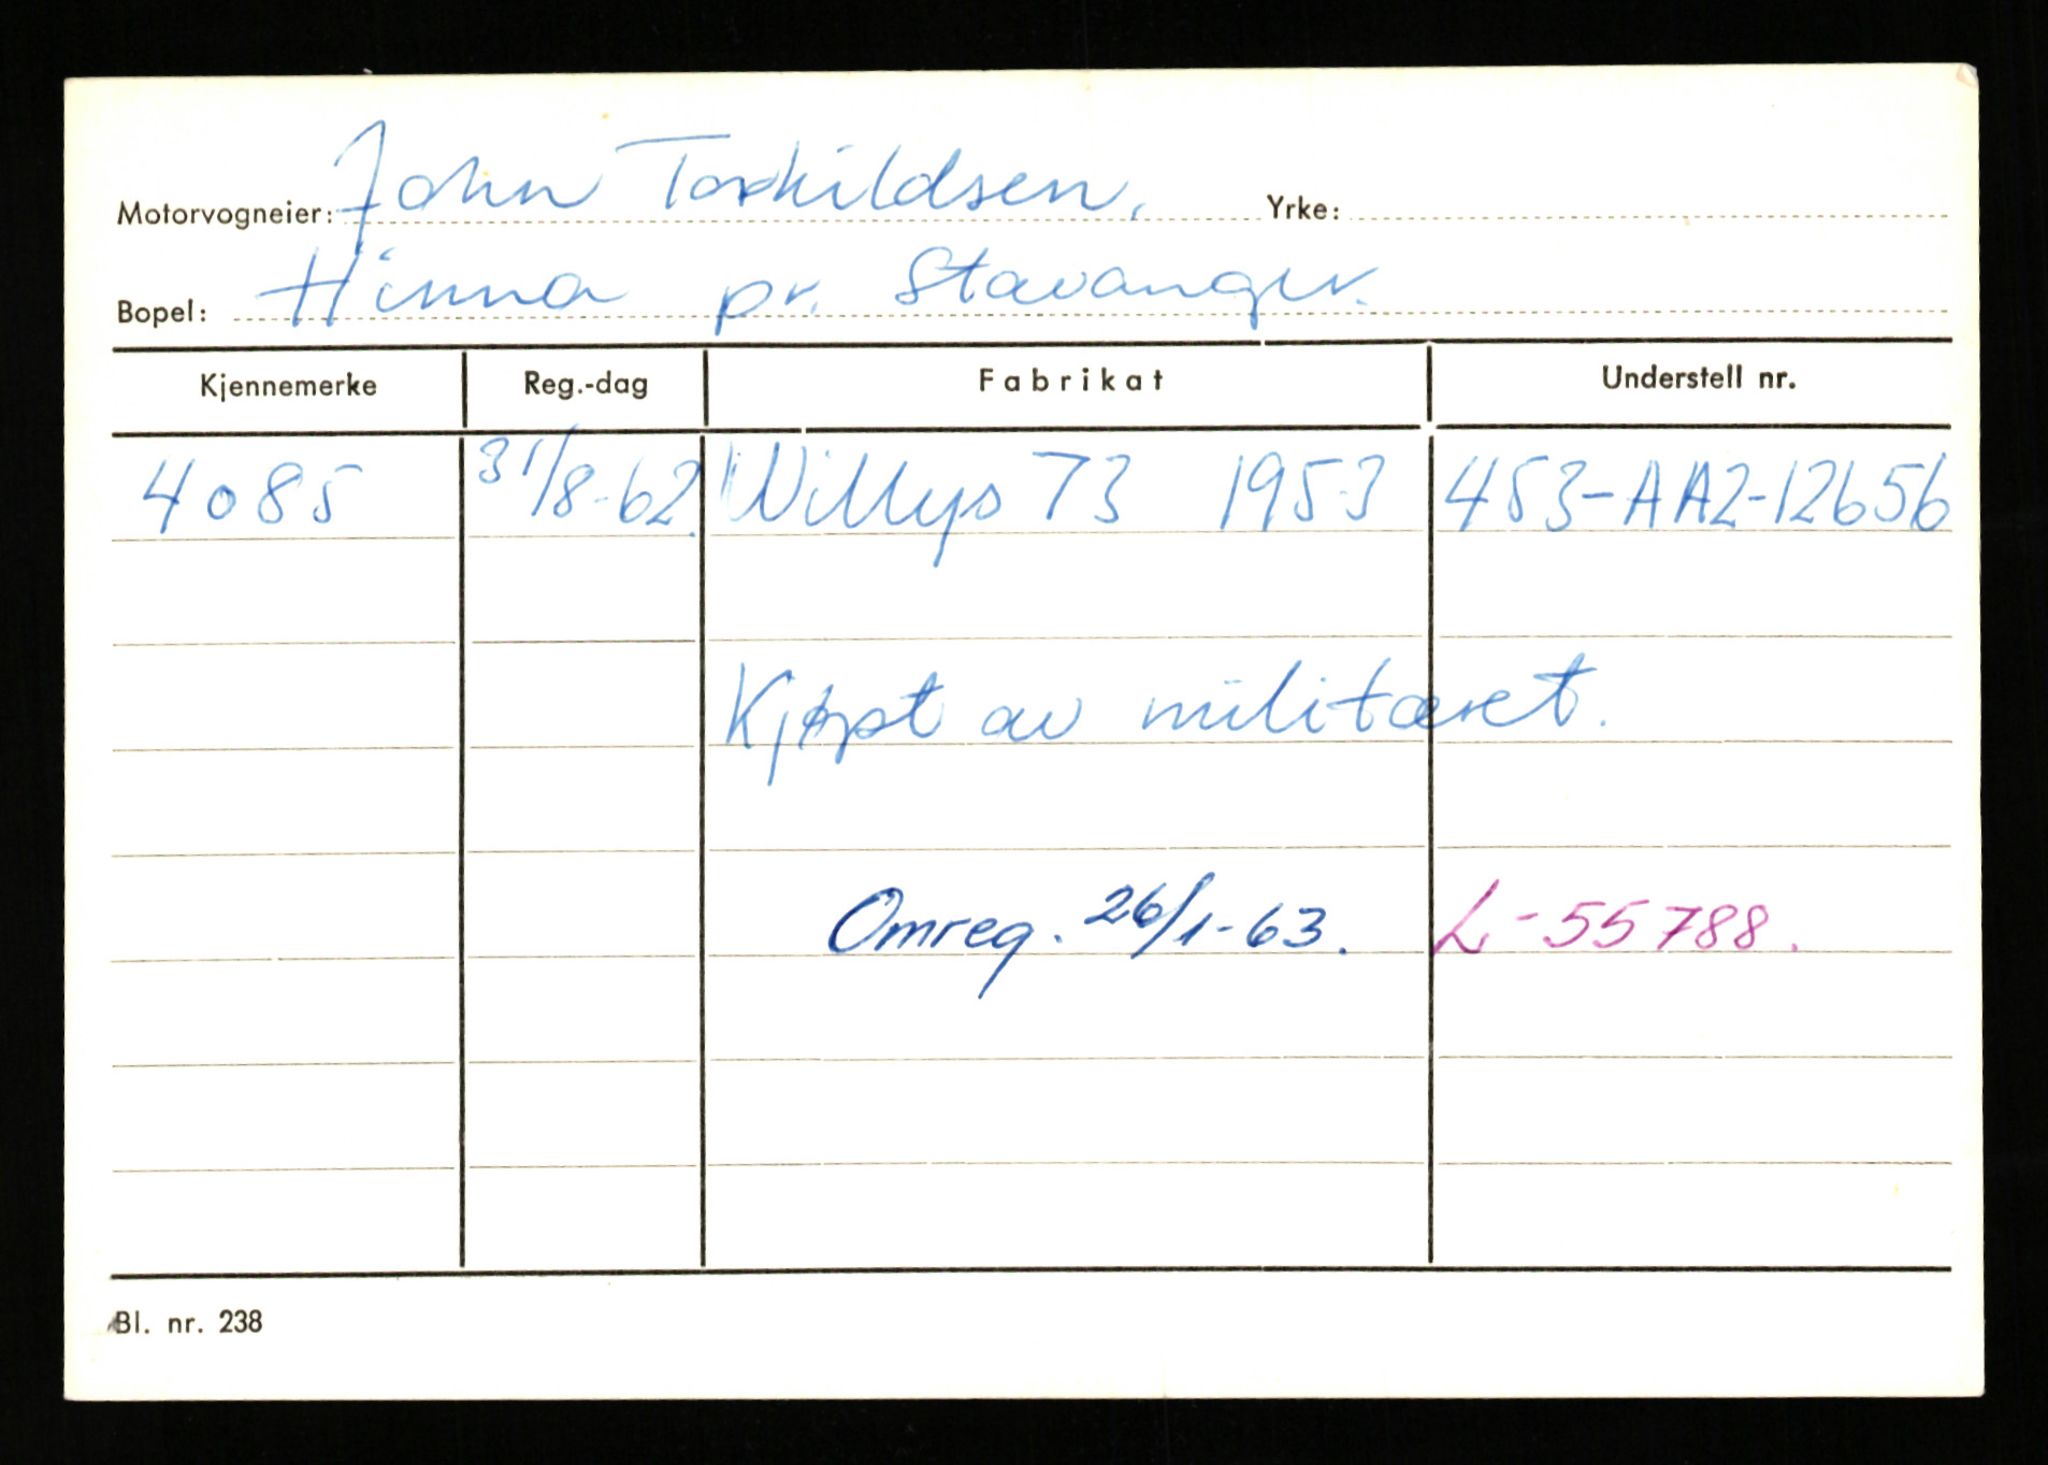 Motorvogneier: John Torkildsen. Yrke:
Bopel: Hinna pr. Stavanger.
Kjennemerke Reg.-dag Fabrikat Understell nr.
4085 31/8-62. Willys 73 1953 453-AA2-12656
Kjøpt av militæret.
Omreg. 26/1-63. L-55788.
Bl. nr. 238